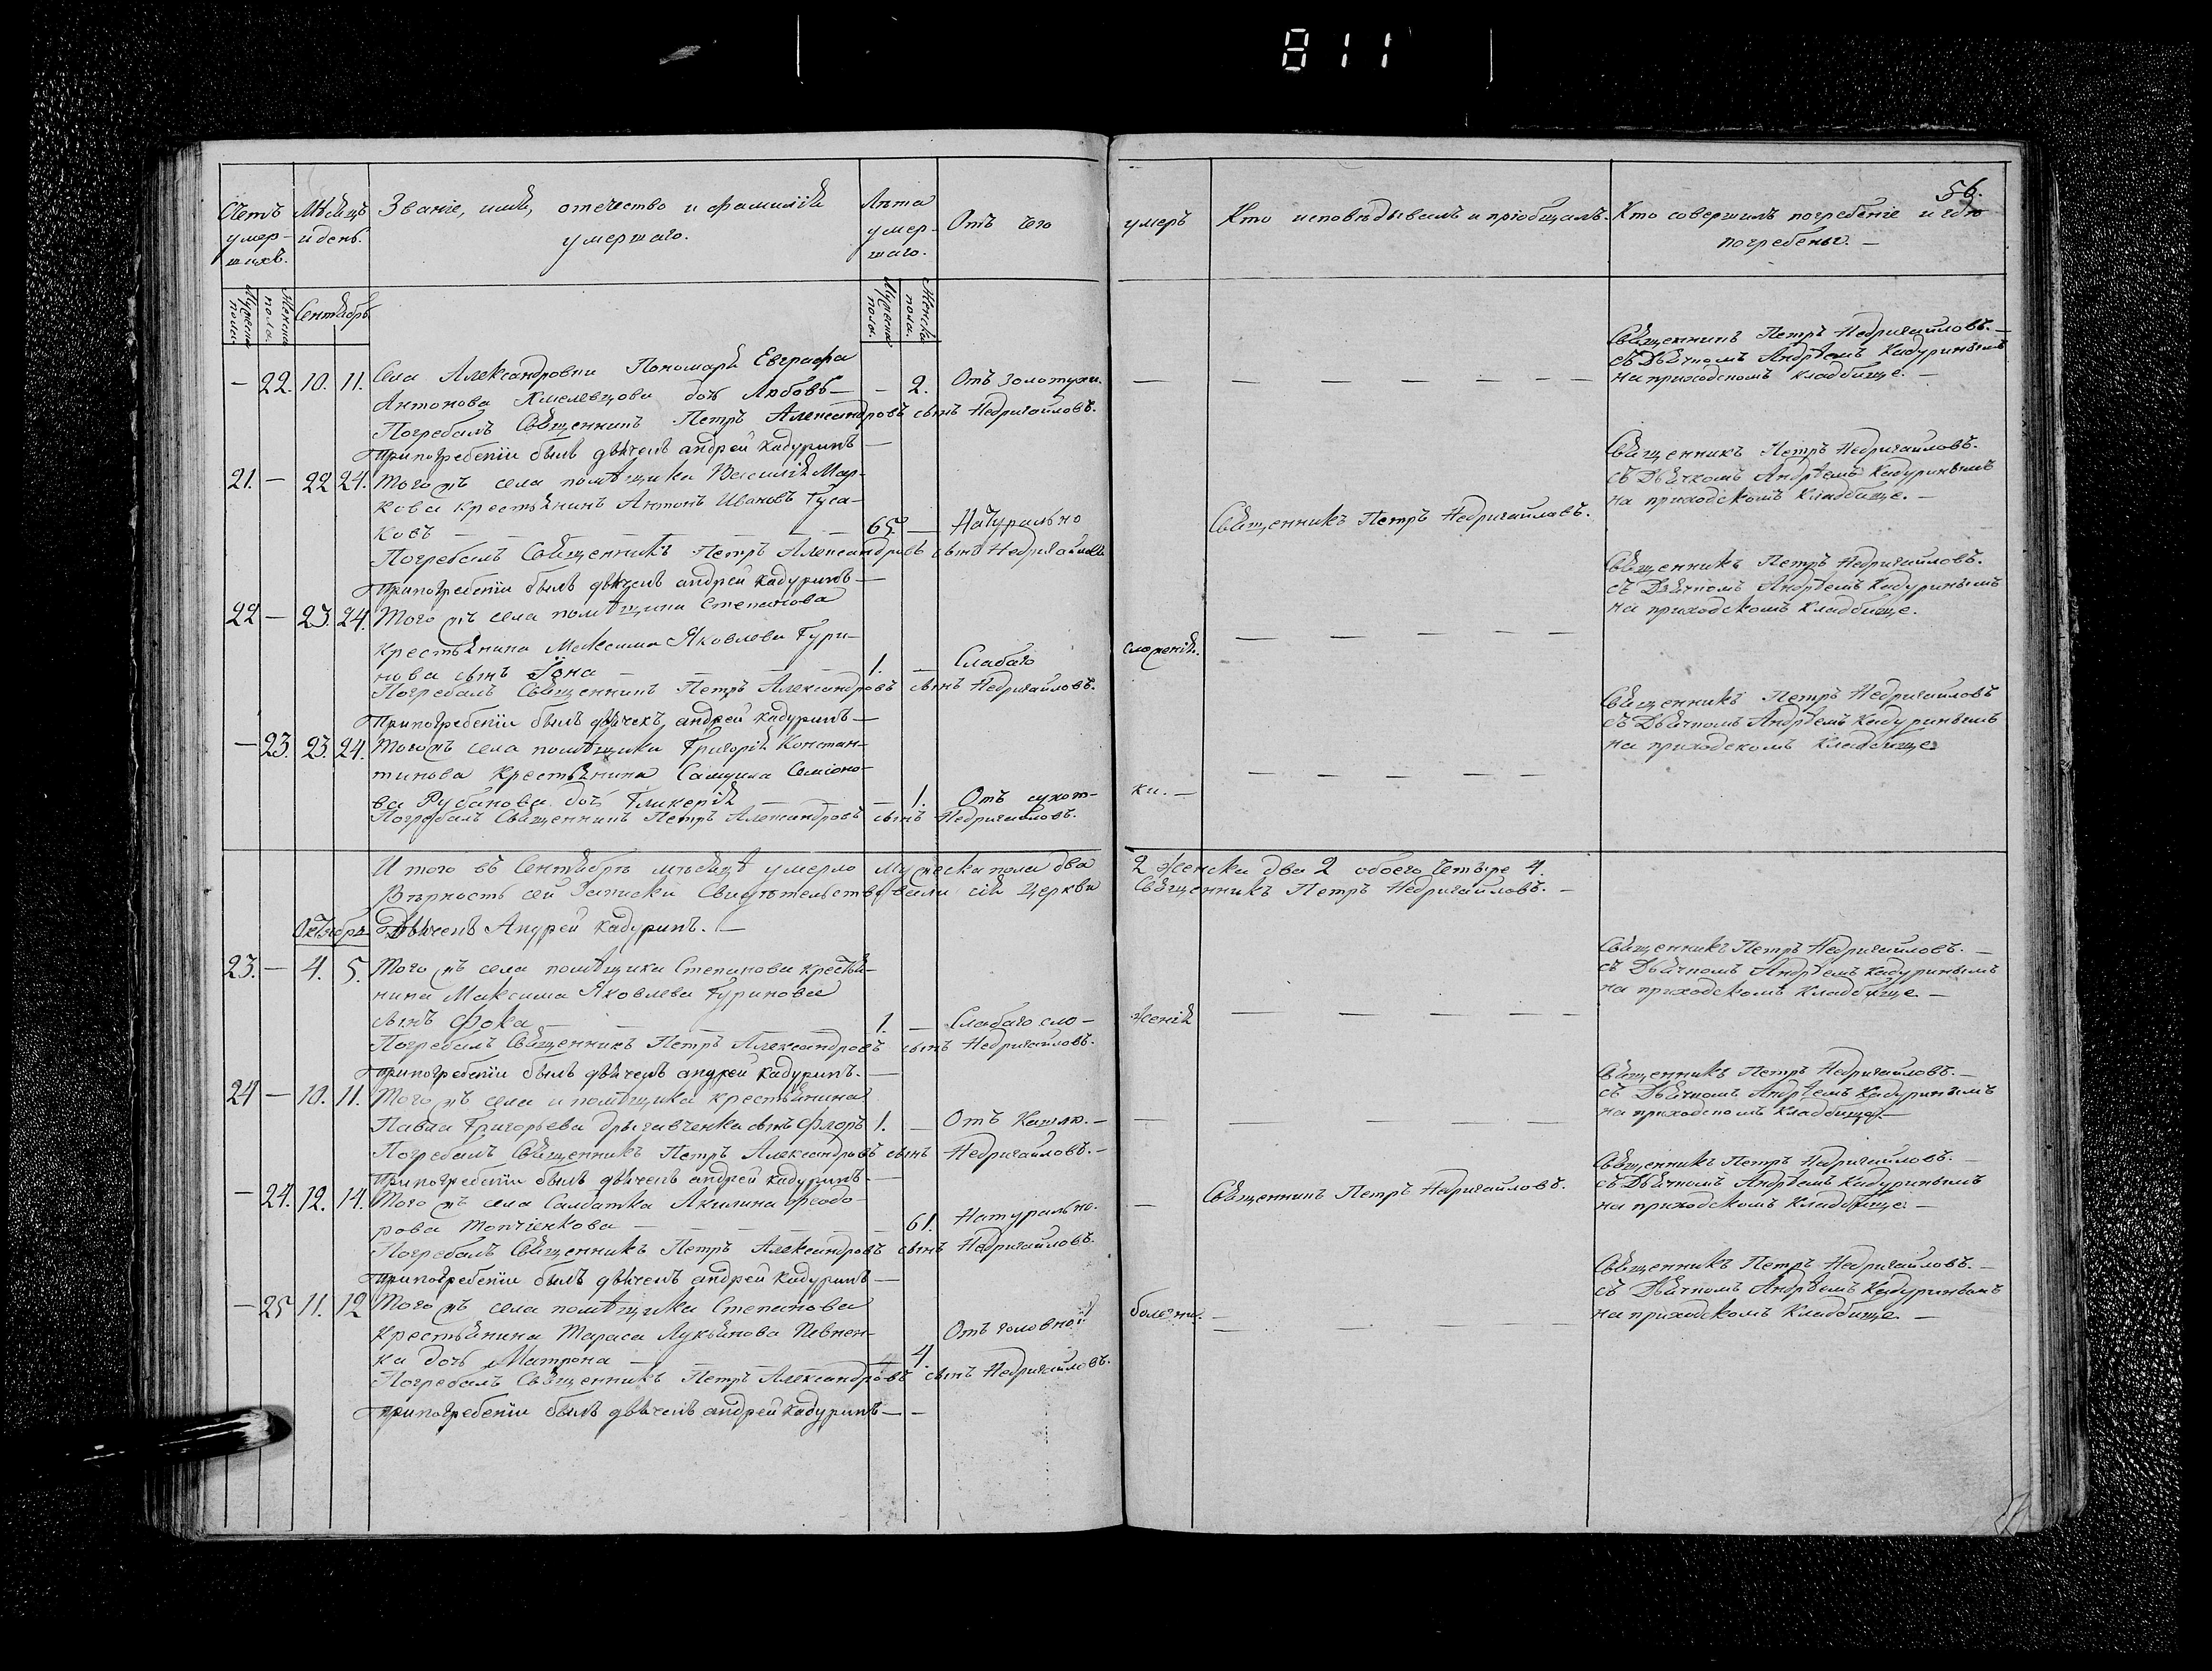 811
56.
Счетъ умер-шихъ.
Мѣсяцъ и день.
Званіе, имя, отечество и фамилія
умершаго.
Лѣта умер-шаго.
Отъ чего
умеръ
Кто исповѣдывалъ и пріобщалъ.
Кто совершилъ погребеніе и гдѣ
погребены. —
Мужеска пола.
Женска пола.
Сентябрь
Мужеска пола.
Женска пола.
— 22. 10. 11. Села Александровки Пономаря Евграфа
Антонова Хмелевцова дочь Любовь — — 2. Отъ золотухи. —
Погребалъ Священникъ Петръ Александровъ сынъ Недригайловъ.
При погребеніи былъ дьячекъ андрей кадуринъ —
Священникъ Петръ Недригайловъ. —
съ Дьячкомъ Андрѣемъ Кадуринымъ
на приходскомъ кладбище. —
21. — 22 24. Того жъ села помѣщика Василія Мар-
кова крестьянинъ Антонъ Ивановъ Гуса-
ковъ — 65. — Натурально
Священникъ Петръ Недригайловъ.
Погребалъ Священникъ Петръ Александровъ сынъ Недригайловъ
При погребеніи былъ дьячекъ андрей кадуринъ —
Священникъ Петръ Недригайловъ.
съ Дьячкомъ Андрѣемъ Кадуринымъ
на приходскомъ Кладбище. —
22 — 23. 24. Того жъ села помѣщика Степанова
крестьянина Максима Яковлева Гури-
нова сынъ Іона — 1. — Слабаго сложенія.
Погребалъ Священникъ Петръ Александровъ сынъ Недригайловъ.
При погребеніи былъ дьячекъ андрей кадуринъ —
Священникъ Петръ Недригайловъ.
съ Дьячкомъ Андрѣемъ Кадуринымъ
на приходскомъ Кладбище.
— 23. 23. 24. Того жъ села помѣщика Григорія Констан-
тинова крестьянина Самуила Семіоно-
ва Рубанова дочь Гликерія — — 1. Отъ сухот-ки. —
Погребалъ Священникъ Петръ Александровъ сынъ Недригайловъ.
Священникъ Петръ Недригайловъ
съ Дьячкомъ Андрѣемъ Кадуринымъ
на приходскомъ кладбище
И того въ Сентябрѣ мѣсяцѣ умерло мужеска пола два 2 женска два 2 обоего четыре 4.
Вѣрность сей Записки Свидѣтельствовали сія Церкви Священникъ Петръ Недригайловъ. —
Октябрь Дьячекъ Андрей Кадуринъ. —
23. — 4. 5. Того жъ села помѣщика Степанова крестья-
нина Максима Яковлева Гуринова
сынъ Фока — 1. — Слабаго сло-женія
Погребалъ Священникъ Петръ Александровъ сынъ Недригайловъ.
При погребеніи былъ дьячекъ андрей кадуринъ. —
Священникъ Петръ Недригайловъ. —
съ Дьячкомъ Андрѣемъ Кадуринымъ
на приходскомъ Кладбище —
24 — 10. 11. Того жъ села и помѣщика крестьянина
Павла Григорьева сынъ Флоръ 1. — Отъ Кашлю. —
Погребалъ Священникъ Петръ Александровъ сынъ Недригайловъ. —
При погребеніи былъ дьячекъ андрей кадуринъ —
Священникъ Петръ Недригайловъ. —
съ Дьячкомъ Андрѣемъ Кадуринымъ
на приходскомъ Кладбище. —
— 24. 12. 14. Того жъ села Салдатка Акилина Феодо-
рова Топчіенкова — 61. Натурально. —
Священникъ Петръ Недригайловъ.
Погребалъ Священникъ Петръ Александровъ сынъ Недригайловъ.
При погребеніи былъ дьячекъ андрей кадуринъ —
Священникъ Петръ Недригайловъ. —
съ Дьячкомъ Андрѣемъ Кадуринымъ
на приходскомъ Кладбище —
— 25 11. 12 Того жъ села помѣщика Степанова
крестьянина Тараса Лукьянова Певнен-
ка дочь Матрона — — 4. Отъ головной болезни. —
Погребалъ Священникъ Петръ Александровъ сынъ Недригайловъ.
При погребеніи былъ дьячекъ андрей кадуринъ — —
Священникъ Петръ Недригайловъ. —
съ Дьячкомъ Андрѣемъ Кадуринымъ
на приходскомъ Кладбище. —